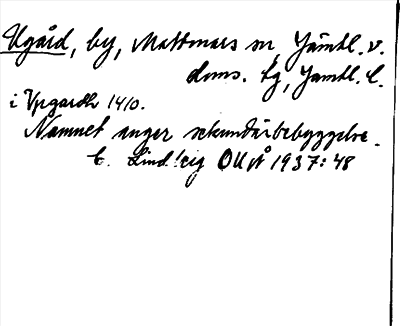 Ugård, by, Mattmars sn Jämtl. v.
doms. tg, Jämtl. l.
i Vpgardh 1410.
Namnet anger sekundärbebyggelse.
C. Lindberg OUÅ 1937:48